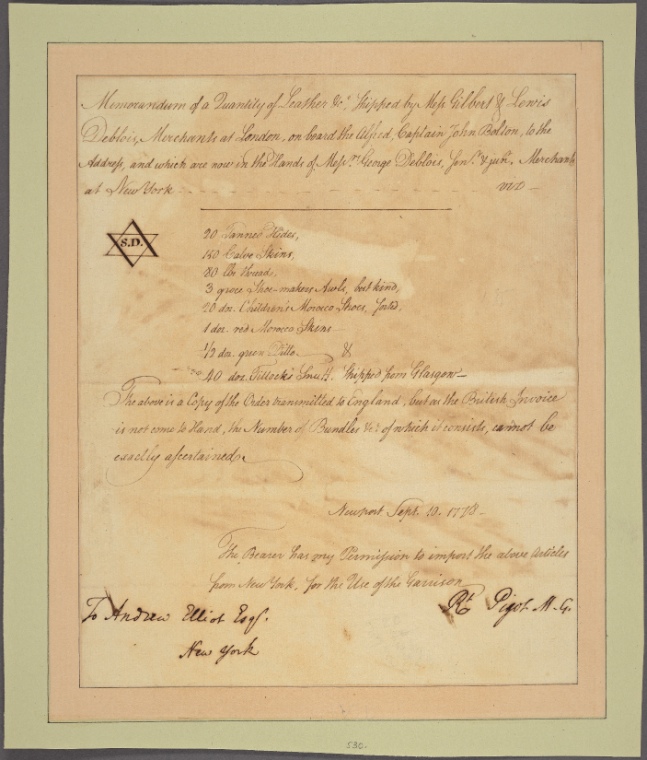 Memorandum of a Quantity of Leather &c. Shipped by Mess. Gilbert & Lewis
Deblois, Merchants at London, on board the Alfred, Captain John Bolton, to the
Address, and which are now in the Hands of Mess.rs George Deblois, Sen.r & jun.r Merchants
at New York
S.D.
20 Tanned Hides,
Calve Skins,
80 lbs Thread,
3 groce Shoe-makers Awls, best kind,
20 doz. Children's Morocco Shoes, sorted
1 doz. red Morocco Skins
1/2 doz. green Ditto &
40 doz. Snuff. Shipped from Glasgow
The above is a Copy of the Order transmitted to England, but as the British Invoice
is not come to Hand, the Number of Bundles &c. of which it consists, cannot be
exactly ascertained.
Newport, Sept. 1778
The Bearer has my Permission to import the above Articles
from New York, for the Use of the Garrison
Rt. Pigot M. G.
To Andrew Elliot Esqr.
New York
530.